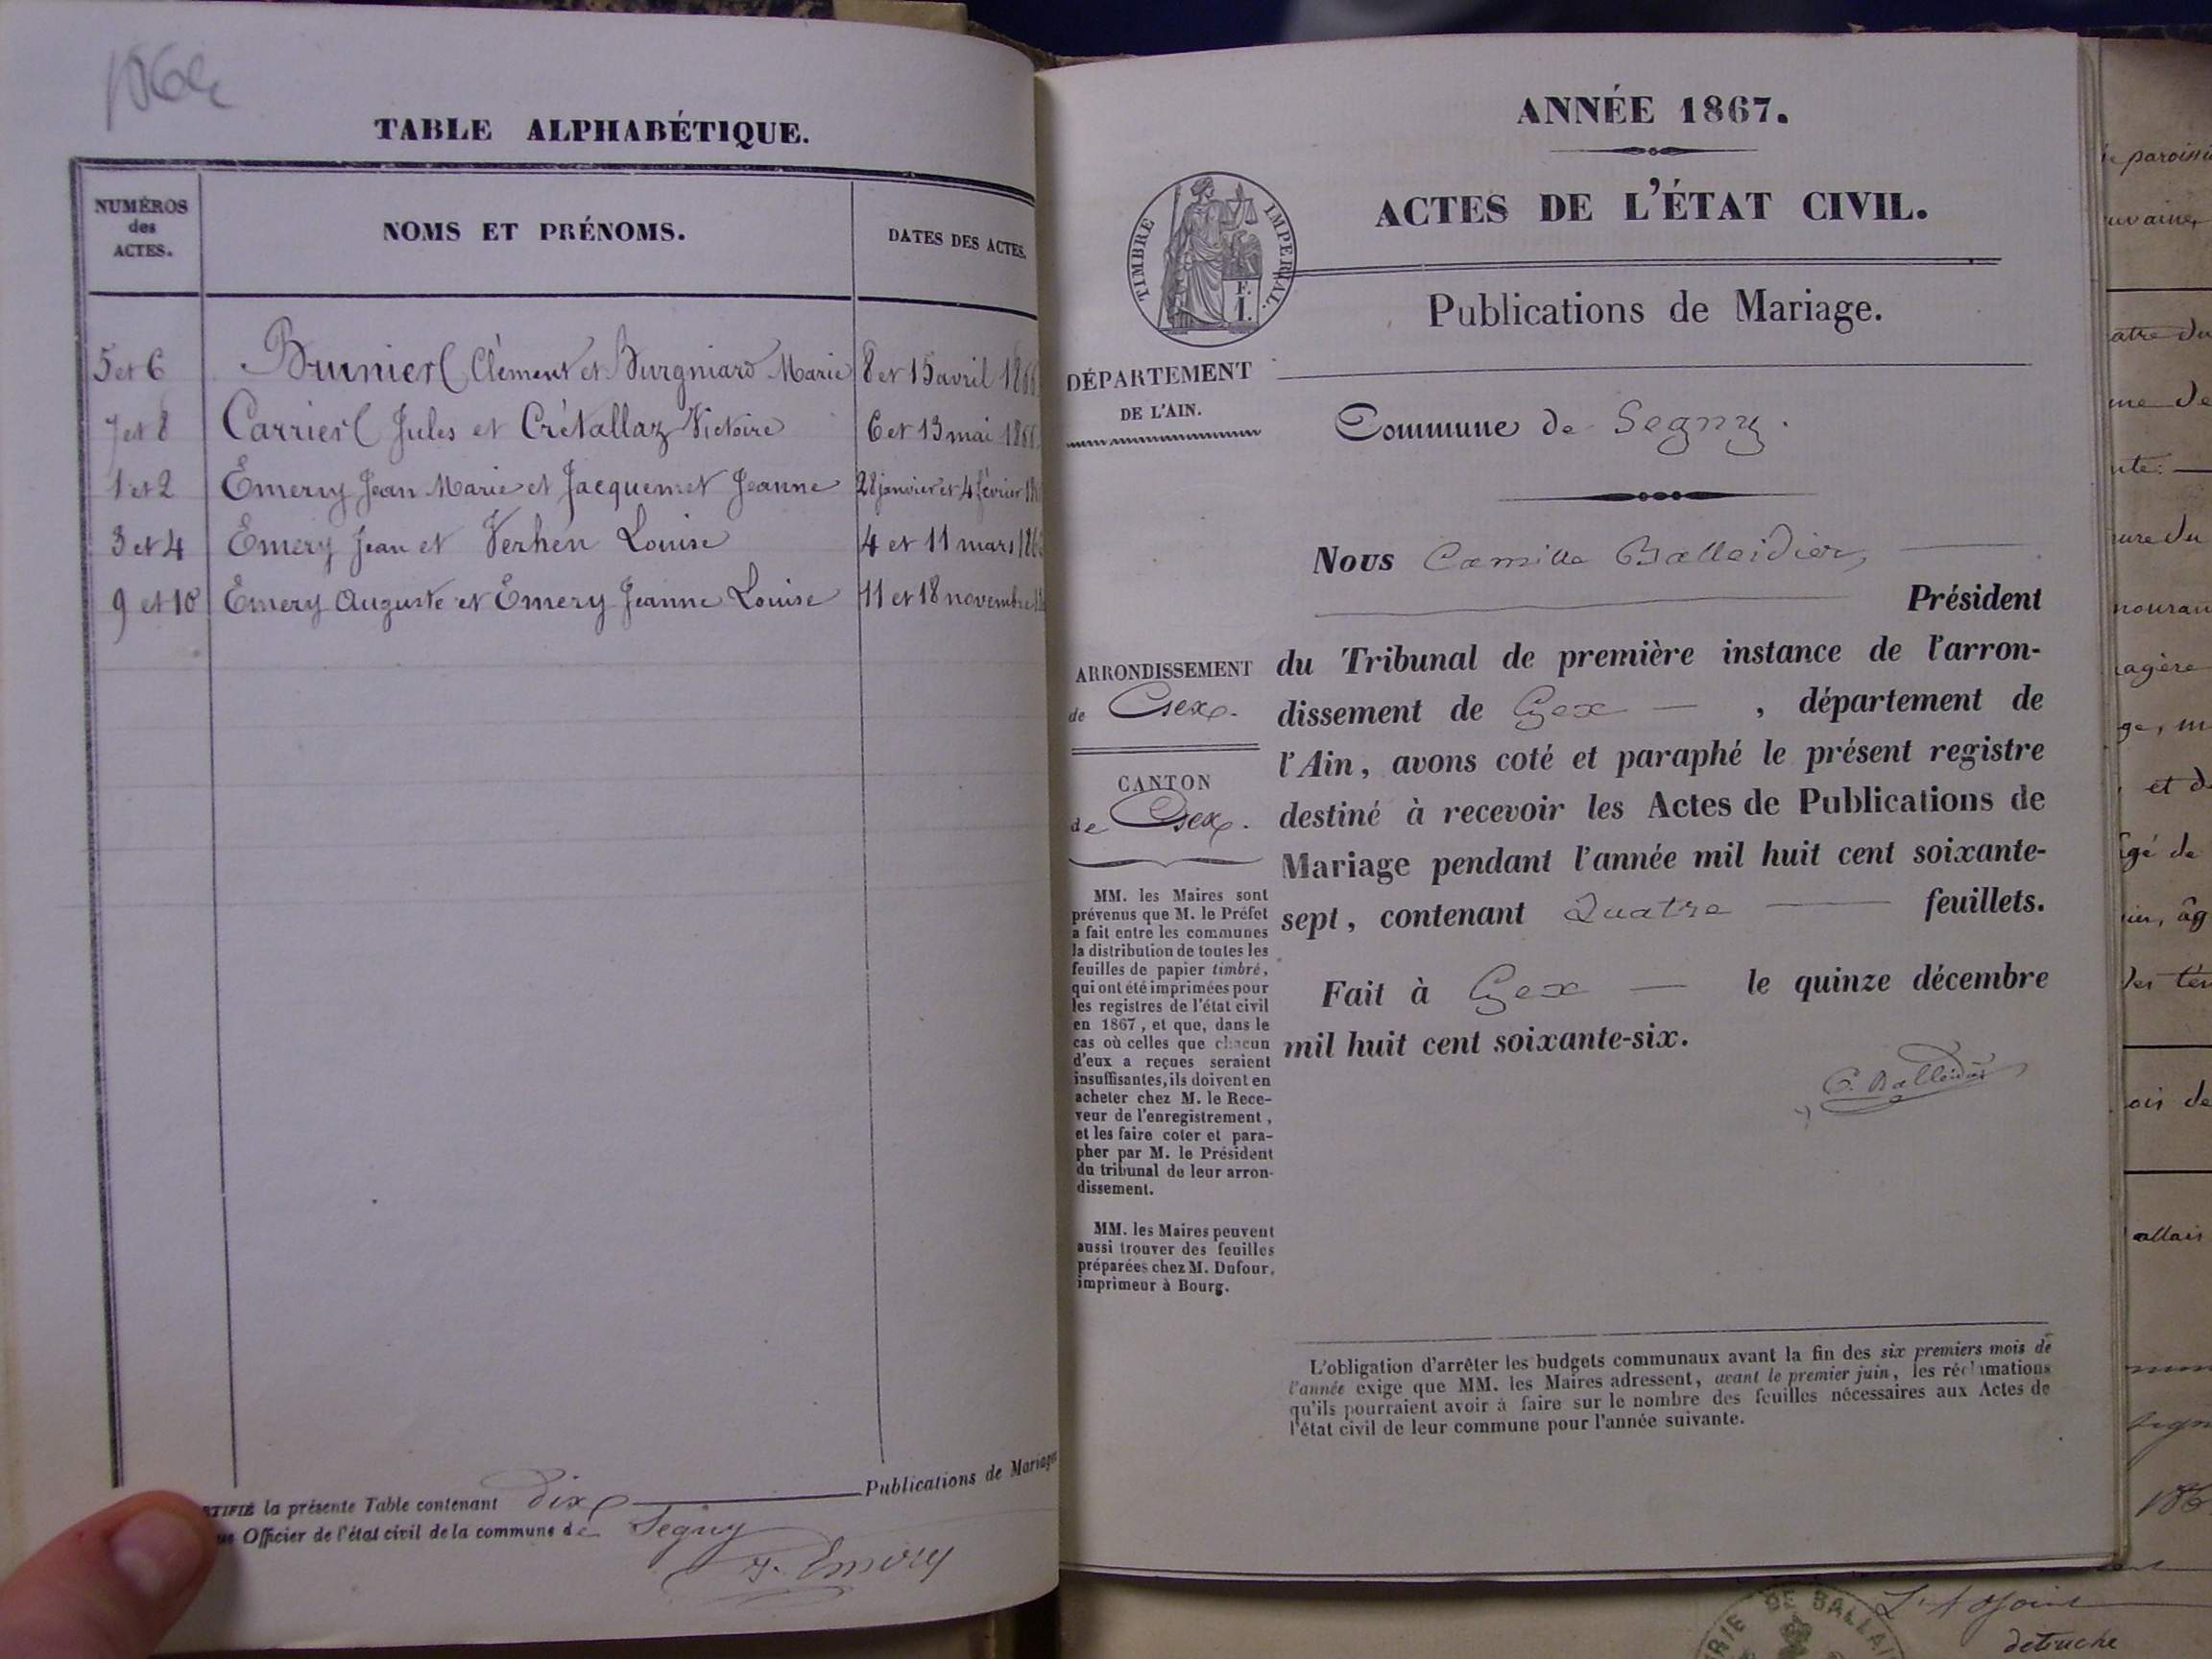 TABLE ALPHABÉTIQUE.
NUMÉROS
des
ACTES.
NOMS ET PRÉNOMS.
DATES DES ACTES.
5 et 6 Brunier Clément et Burgniard Marie 8 et 15 avril 1866
7 et 8 Carrier Jules et Crétallaz Victoire 6 et 13 mai 186
1 et 2 Emery Jean Marie et Jacquemet Jeanne 28 janvier et 4 février
3 et 4 Emery Jean et Louise 4 et 11 mars
9 et 10 Emery Auguste et Emery Jeanne Louise 11 et 18 novembre
TIFIÉ la présente Table contenant dix Publications de Mariage
Officier de l'état civil de la commune de Segny
J. Emery
ANNÉE 1867.
ACTES DE L'ÉTAT CIVIL.
TIMBRE IMPERIAL.
F.
I.
Publications de Mariage.
DÉPARTEMENT
DE L'AIN.
Commune de Segny.
Nous Camille Balleidier,
Président
ARRONDISSEMENT
de Gex.
CANTON
de Gex.
du Tribunal de première instance de l'arron-
dissement de Gex — , département de
l'Ain, avons coté et paraphé le présent registre
destiné à recevoir les Actes de Publications de
Mariage pendant l'année mil huit cent soixante-
sept, contenant Quatre — feuillets.
Fait à Gex — le quinze décembre
mil huit cent soixante-six.
C. Balleidier
MM. les Maires sont
prévenus que M. le Préfet
a fait entre les communes
la distribution de toutes les
feuilles de papier timbré,
qui ont été imprimées pour
les registres de l'état civil
en 1867, et que, dans le
cas où celles que chacun
d'eux a reçues seraient
insuffisantes, ils doivent en
acheter chez M. le Rece-
veur de l'enregistrement,
et les faire coter et para-
pher par M. le Président
du tribunal de leur arron-
dissement.
MM. les Maires peuvent
aussi trouver des feuilles
préparées chez M. Dufour,
imprimeur à Bourg.
L'obligation d'arrêter les budgets communaux avant la fin des six premiers mois de
l'année exige que MM. les Maires adressent, avant le premier juin, les réclamations
qu'ils pourraient avoir à faire sur le nombre des feuilles nécessaires aux Actes de
l'état civil de leur commune pour l'année suivante.
et de
âg
allais
RIE DE BALLAI
détruche